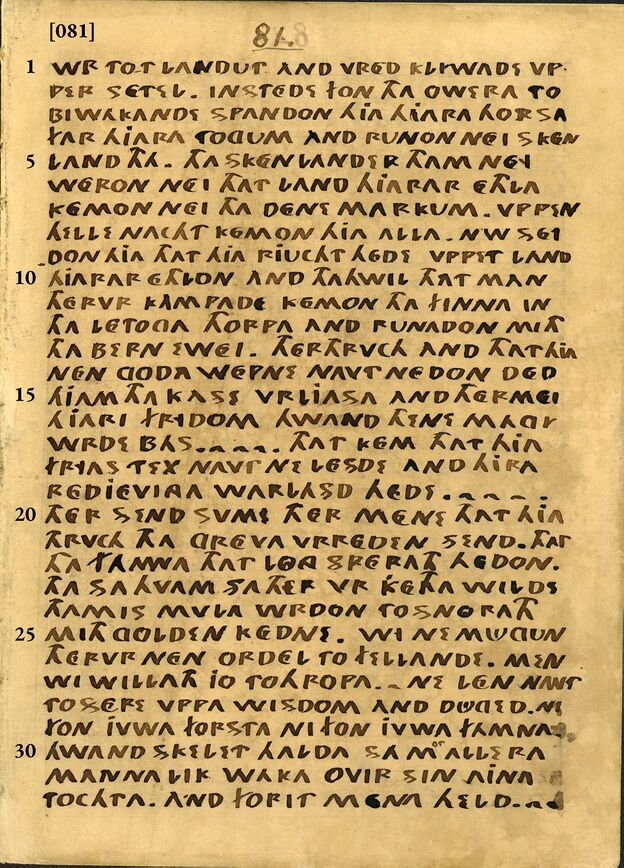 [081]
81.
1 WR TOT LANDUT. AND VRED KLIWADE VP
PER SETEL. INSTEDE FON THA OWERA TO
BIWAKANDE SPANDON HIA HIARA HORSA
FAR HIARA TOGUM AND RUNON NEI SKEN
5 LAND THA. THA SKENLANDER THAM NEI
WERON NEI THAT LAND HIARAR ETHLA
KEMON NEI THA DENE MARKUM. VPPEN
HELLE NACHT KEMON HIA ALLA. NW SEI
DON HIA THAT HIA RIUCHT HEDE VPPET LAND
10 HIARAR ETHLON AND THAHWIL THAT MAN
THERVR KAMPADE KEMON THA FINNA IN
THA LETOGA THORPA AND RUNADON MITH
THA BERN EWEI. THERTHRVCH AND THAT HIA
NEN GODA WEPNE NAVT NEDON DED
15 HIAM THA KASE VRLIASA AND THERMEI
HIARI FRIDOM HWAND THENE MAGI
WRDE BAS. THAT KEM THAT HIA
FRIAS TEX NAVT NE LESDE AND HIRA
REDIEVINA WARLASD HEDE.
20 THER SEND SVME THER MENE THAT HIA
THRVCH THA GREVA VRREDEN SEND. THAT
THA FAMNA THAT LONG SPERATH HEDON.
THA SA HVAM SA THER VR KETHA WILDE
THAMIS MVLA WRDON TO SNORATH
25 MITH GOLDEN KEDNE. WI NE MUGUN
THERVR NEN ORDEL TO FELLANDE. MEN
WI WILLATH IO TOHROPA. NE LEN NAVT
TO SERE VPPA WISDOM AND DUGED. NI
FON IVWA FORSTA NI FON IVWA FAMNA
30 HWAND SKELET HALDA SA MOT ALLERA
MANNA LIK WAKA OVIR SIN AINA
TOCHTA. AND FORIT MENA HELD.